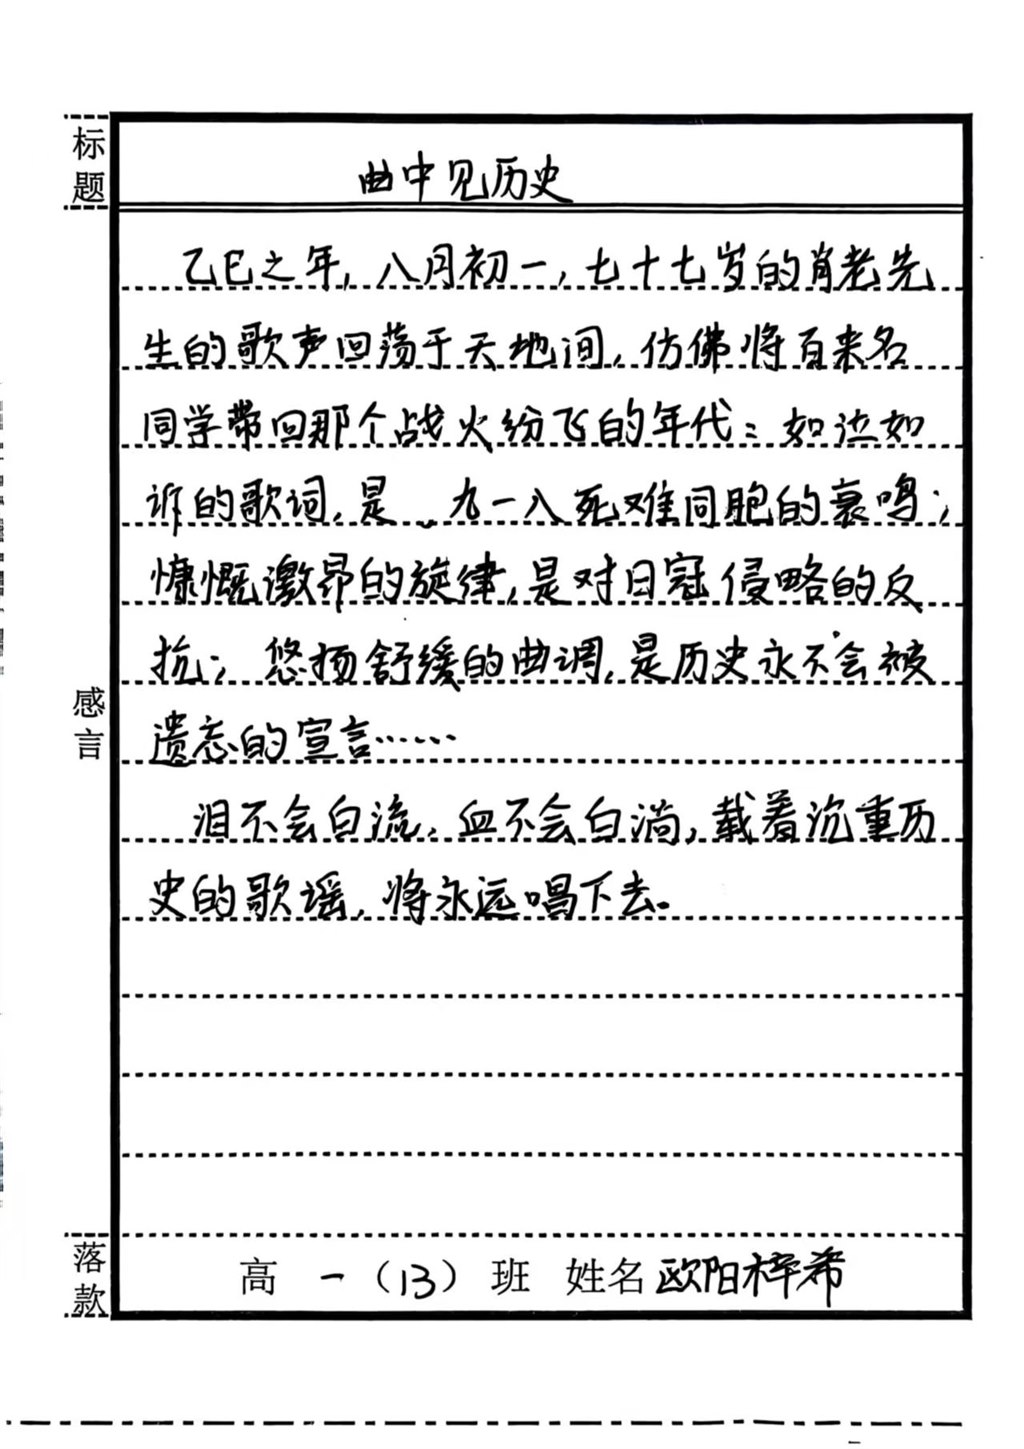 标题
曲中见历史
乙巳之年，八月初一，七十七岁的肖老先
生的歌声回荡于天地间，仿佛将百来名
同学带回那个战火纷飞的年代：如泣如
诉的歌词，是 九一八死难同胞的哀鸣；
慷慨激昂的旋律，是对日寇侵略的反
抗； 悠扬舒缓的曲调，是历史永不会被
遗忘的宣言……
感言
泪不会白流，血不会白淌，载着沉重历
史的歌谣，将永远唱下去。
落款
高 一（13）班 姓名 欧阳梓希